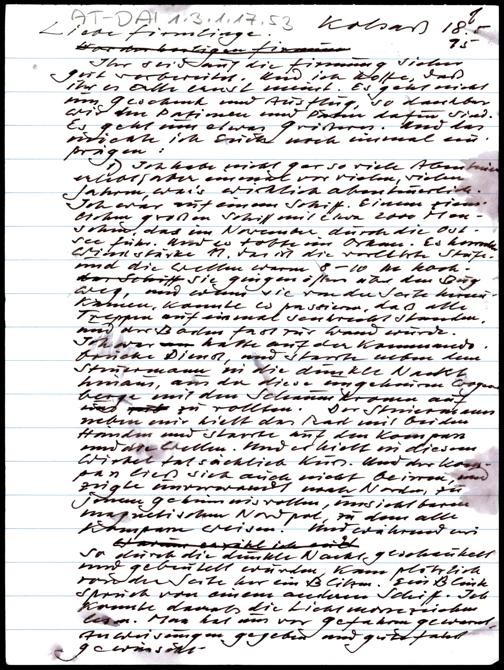 AT-DAI 1.3.1.1.17.53
Kolsaß 18.6.
95
Liebe Firmlinge.
Ihr seid auf die Firmung sicher
gut vorbereitet. Und ich hoffe, daß
ihr es alle ernst meint. Es geht nicht
um Geschenk und Ausflug, so dankbar
wir den Patinnen und Paten dafür sind.
Es geht um etwas Größeres. Und das
möchte ich Euch noch einmal ein-
prägen:
1) Ich habe nicht gar so viele Abenteuer
erlebt, aber einmal vor vielen, vielen
Jahren, war's wirklich abenteuerlich.
Ich war auf einem Schiff. Einem ziem-
lich großen Schiff mit etwa 2000 Men-
schen, das im November durch die Ost-
see fuhr. Und es tobte ein Orkan. Es herrschte
Windstärke 11, das ist die vorletzte Stufe
und die Wellen waren 8-10 m hoch.
Sie gingen öfters über den Bug
weg, und wenn sie von der Seite herein-
kamen, konnte es passieren, daß alle
Treppen auf einmal senkrecht standen,
und der Boden fast zur Wand wurde.
Ich hatte auf der Kommando-
brücke Dienst, und starrte neben dem
Steuermann in die dunkle Nacht
hinaus, aus der diese ungeheuren
berge mit den Schaumkronen auf
uns zu rollten. Der Steuermann
neben mir hielt das Rad mit beiden
Händen und starrte auf den Kompass
und die Wellen. Und er hielt in diesem
Wirbel tatsächlich Kurs. Und der Kom-
pass ließ sich auch nicht beirren, und
zeigte unverwandt nach Norden, zu
jenem geheimnisvollen, unsichtbaren
magnetischen Nordpol, zu dem alle
Kompasse weisen. Und während wir
so durch die dunkle Nacht geschaukelt
und gebeutelt wurden, kam plötzlich
von der Seite her ein Blitzen. Ein Blink-
spruch von einem anderen Schiff. Ich
konnte damals die Lichtmorsezeichen
lesen. Man hat uns vor Gefahren gewarnt,
Anweisungen gegeben und gute Fahrt
gewünscht.